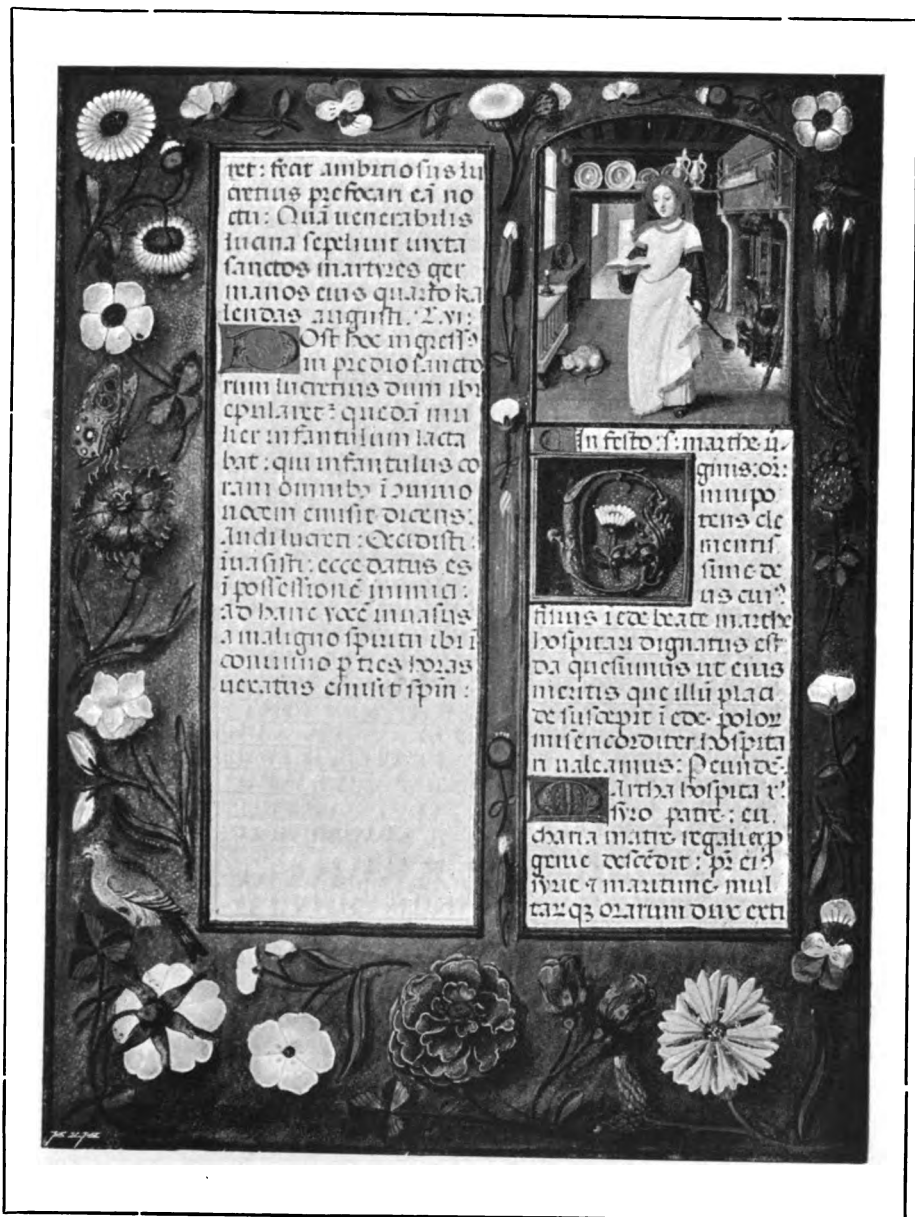 ret : fecit ambitiosus lu
cretius prefocari eā no
cte : Quā uenerabilis
lucina sepeliuit iuxta
sanctos martyres ger
manos eius quarto ka
lendas augusti. L. vi:
Post hoc ingressꝰ
in predio sancto
rum lucretius dum ibi
epularet᷑ quedā mu
lier infantulum lacta
bat : qui infantulus co
ram omnibꝰ i
uocem emisit dicens :
Audi lucreti : Occidisti :
inuasisti : ecce datus es
ī possessionē inimici :
ad hanc uocē inuasus
a maligno spiritu ibi ī
conuiuio p tres horas
uexatus emisit spm̄ :
In festo . s. marthe ū-
ginis : or :
Omnipo
tens cle
mentis
sime de
us cuiꝰ
filius ī ede beate marthe
hospitari dignatus est
da quesumus ut eius
meritis que illū placi
de suscepit ī ede polor
misericorditer hospita
ri ualeamus : P eundē.
Martha hospita
syro patre : eu
charia matre regali ex p
genie descēdit : pr̄ eiꝰ
syrie ⁊ maritime mul
tarqꝫ orarum dux exti